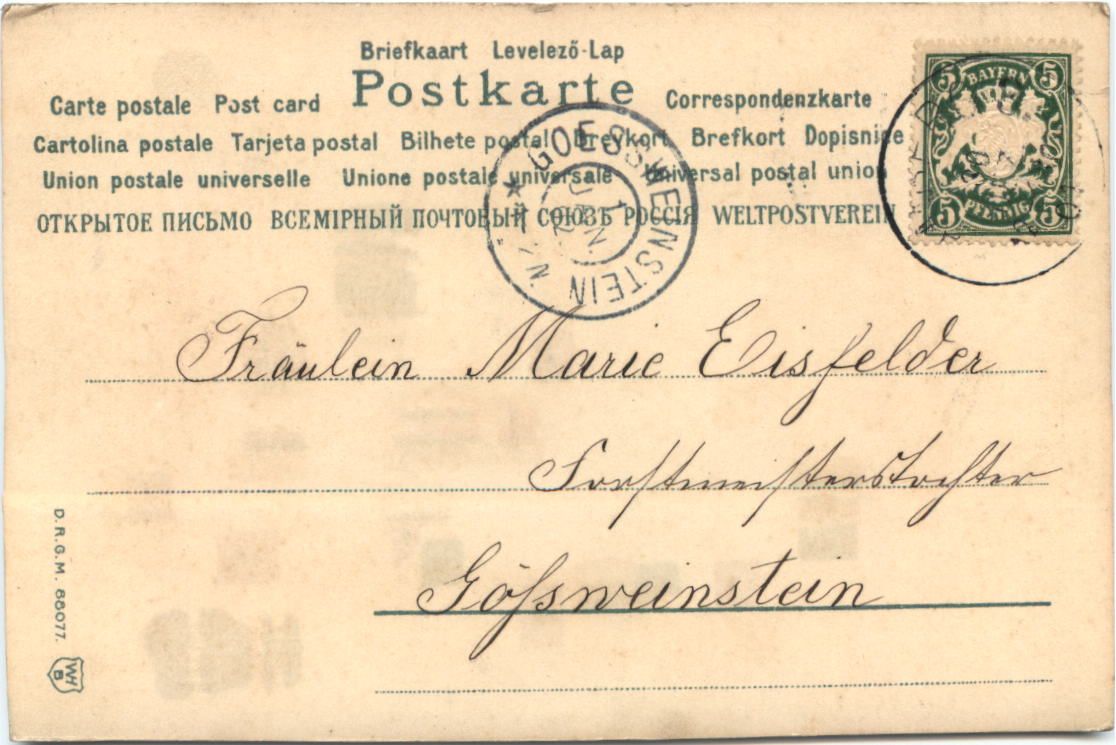 Briefkaart Levelező-Lap
Postkarte
Carte postale Post card Correspondenzkarte
Cartolina postale Tarjeta postal Bilhete postal Brevkort Brefkort Dopisnice
Union postale universelle Unione postale universale Universal postal union
ОТКРЫТОЕ ПИСЬМО ВСЕМІРНЫЙ ПОЧТОВЫЙ СОЮЗЪ РОССІЯ WELTPOSTVEREIN
5 BAYERN 5
5 PFENNIG 5
GOESSWEINSTEIN
1
JAN
Fräulein Marie Eisfelder
Forstmeisterstochter
Gößweinstein
D.R.G.M. 88077.
WH
B